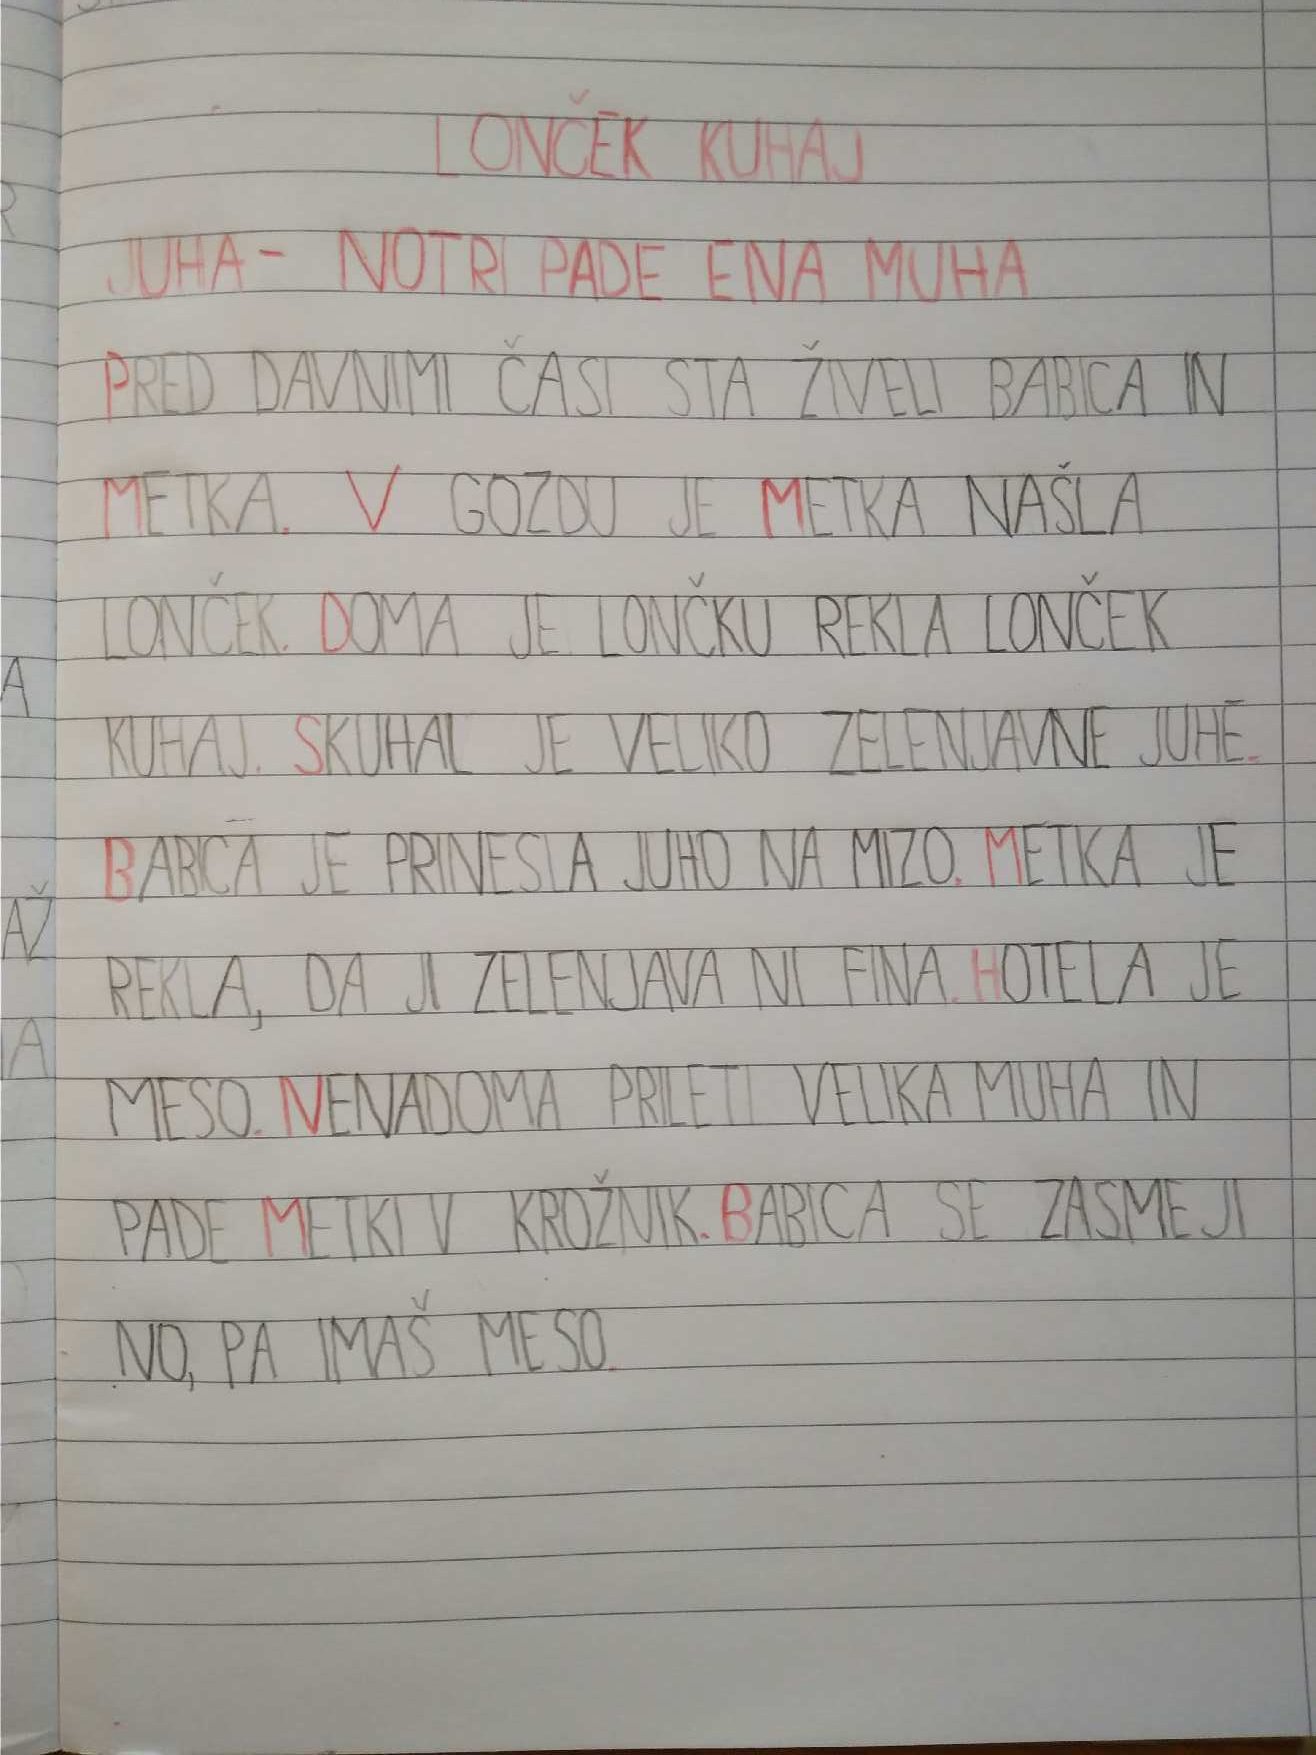 LONČEK KUHAJ
JUHA - NOTRI PADE ENA MUHA
PRED DAVNIMI ČASI STA ŽIVELI BABICA IN
METKA. V GOZDU JE METKA NAŠLA
LONČEK. DOMA JE LONČKU REKLA LONČEK
KUHAJ. SKUHAL JE VELIKO ZELENJAVNE JUHE.
BABICA JE PRINESLA JUHO NA MIZO. METKA JE
REKLA, DA JI ZELENJAVA NI FINA. HOTELA JE
MESO. NENADOMA PRILETI VELIKA MUHA IN
PADE METKI V KROŽNIK. BABICA SE ZASMEJI
NO, PA IMAŠ MESO.